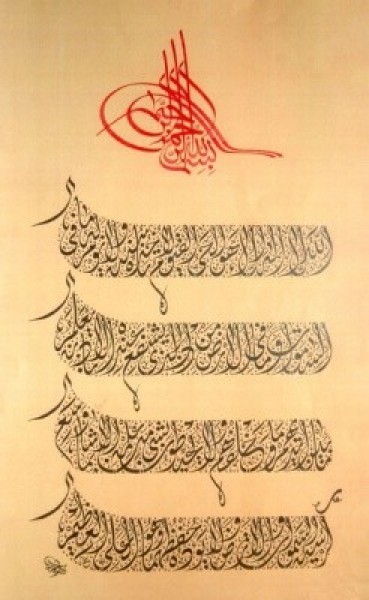 بسم الله الرحمن الرحيم
الله لا إله إلا هو الحي القيوم لا تأخذه سنة ولا نوم له ما في
السموات وما في الأرض من ذا الذي يشفع عنده إلا بإذنه يعلم
ما بين أيديهم وما خلفهم ولا يحيطون بشيء من علمه إلا بما شاء وسع
كرسيه السموات والأرض ولا يؤده حفظهما وهو العلي العظيم